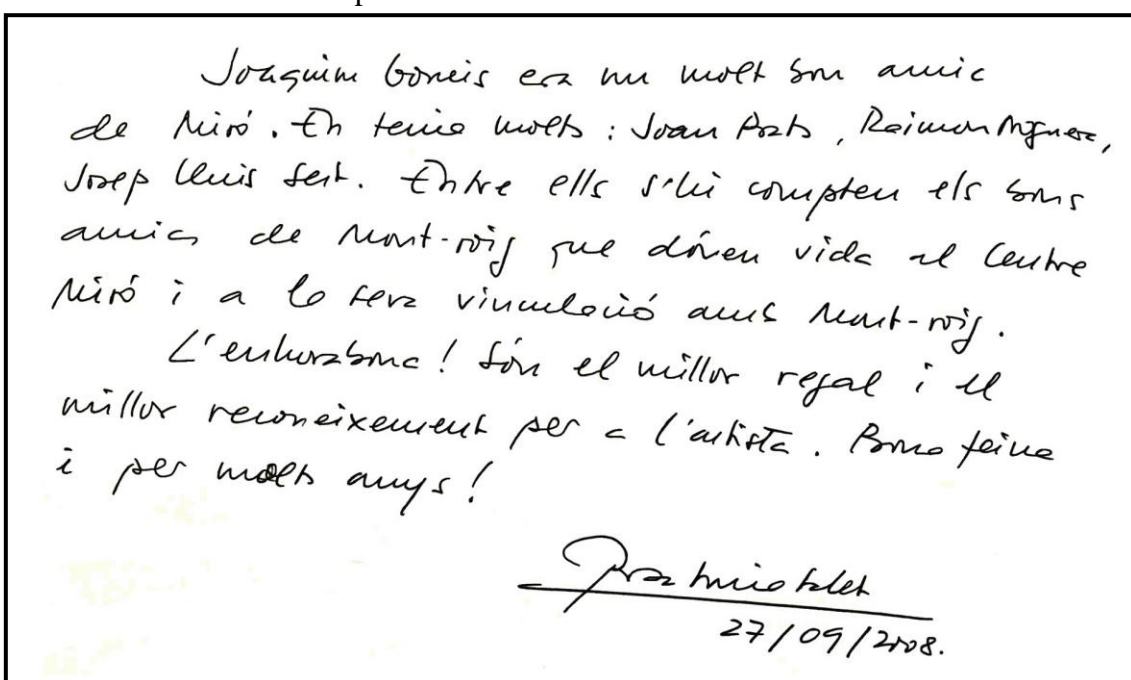 Joaquim Gomis era un molt bon amic
de Miró. En tenia molts: Joan Prats, Raimon Noguera,
Josep Lluis Sert. Entre ells s'hi compten els bons
amics de Mont-roig que dónen vida al Centre
Miró i a la seva vinculació amb Mont-roig.
L'enhorabona! Són el millor regal i el
millor reconeixement per a l'artista. Bona feina
i per molts anys!
Rosa Maria Malet
27/09/2008.